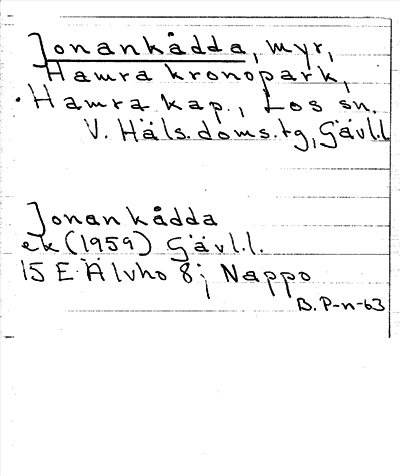 Jonankådda, myr,
Hamra kronopark,
Hamra kap., Los sn.
V. Häls. doms.tg, Gävl.l
Jonankådda
ek (1959) Gävl.l.
15 E Älvho 8 j Nappo
B. P-n-63